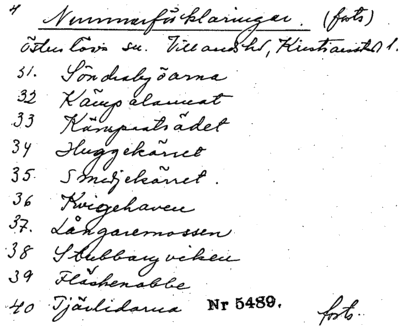 4 Nummerförklaringar. (forts)
Österlövs sn. Villands hd, Kristianstad l.
31. Söndrabjöarna
32 Kämpalamat
33 Kämpaträdet
34 Huggekärret
35. Smedjekärret.
36 Kvigehaven
37. Långaremossen
38 Stubbarpviken
39 Fläskenabbe
40 Tjävlidarna Nr 5489. forts.